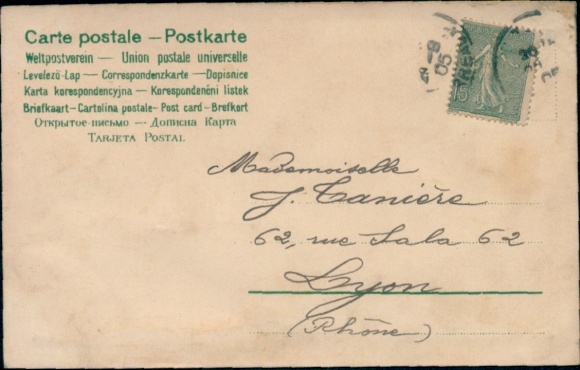 Carte postale – Postkarte
Weltpostverein — Union postale universelle
Levelező-Lap — Correspondenzkarte — Dopisnice
Karta korespondencyjna — Korespondenční listek
Briefkaart – Cartolina postale – Post card – Brefkort
Открытое письмо — Дописна Карта
Tarjeta Postal
15
Mademoiselle
J. Tanière
62, rue Sala 62
Lyon
(Rhône)